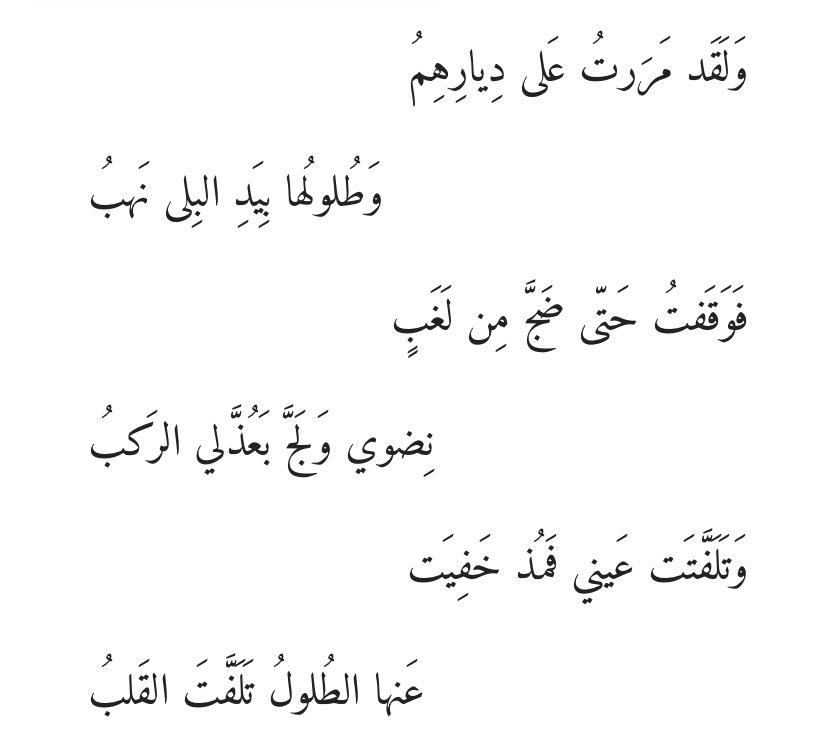 وَلَقَد مَرَرتُ عَلى دِيارِهِمُ
وَطُلولُها بِيَدِ البِلى نَهبُ
فَوَقَفتُ حَتّى ضَجَّ مِن لَغَبٍ
نِضوي وَلَجَّ بَعُذَّلي الرَكبُ
وَتَلَفَّتَت عَيني فَمُذ خَفِيَت
عَنها الطُلولُ تَلَفَّتَ القَلبُ